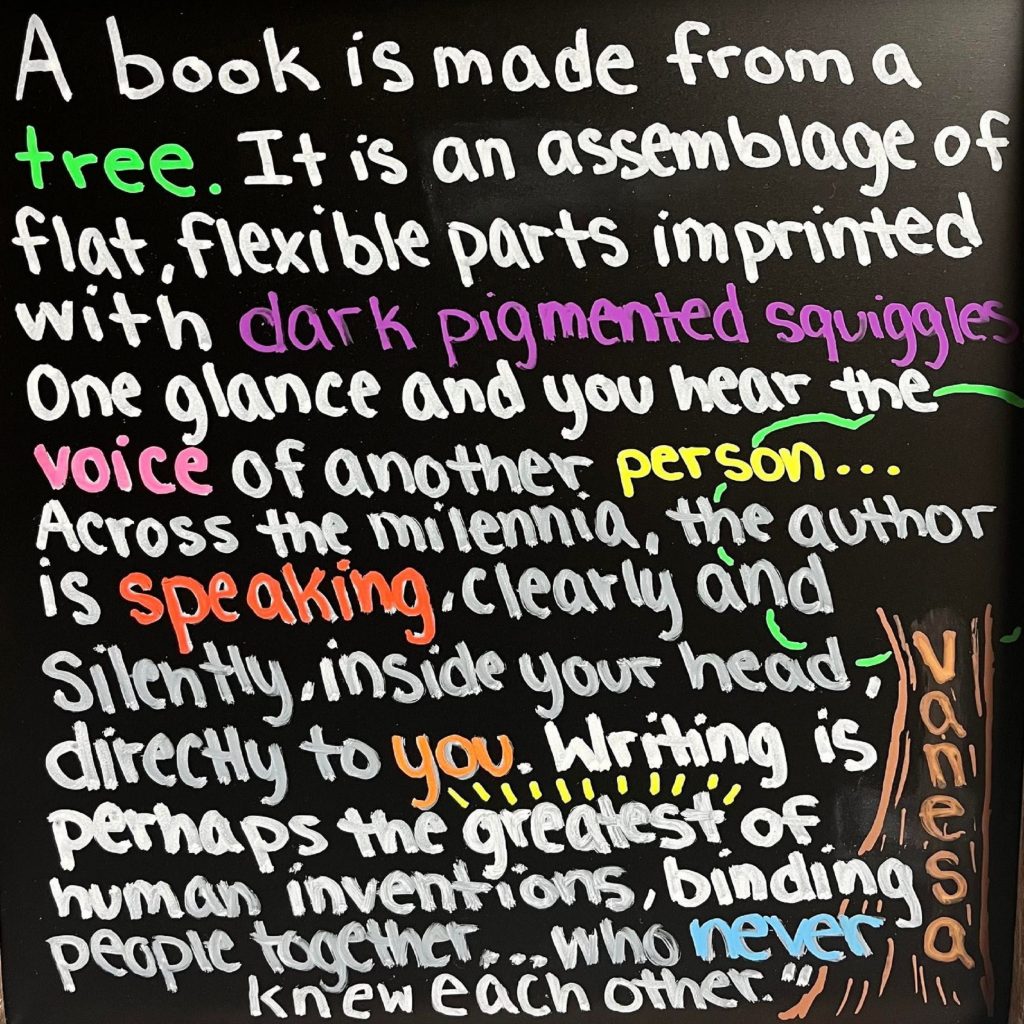 A book is made from a
tree. It is an assemblage of
flat, flexible parts imprinted
with dark pigmented squiggles
One glance and you hear the
voice of another person...
Across the milennia, the author
is speaking, clearly and
Silently, inside your head,
directly to you. Writing is
perhaps the greatest of
human inventions, binding
people together... who never
knew each other."
vanesa